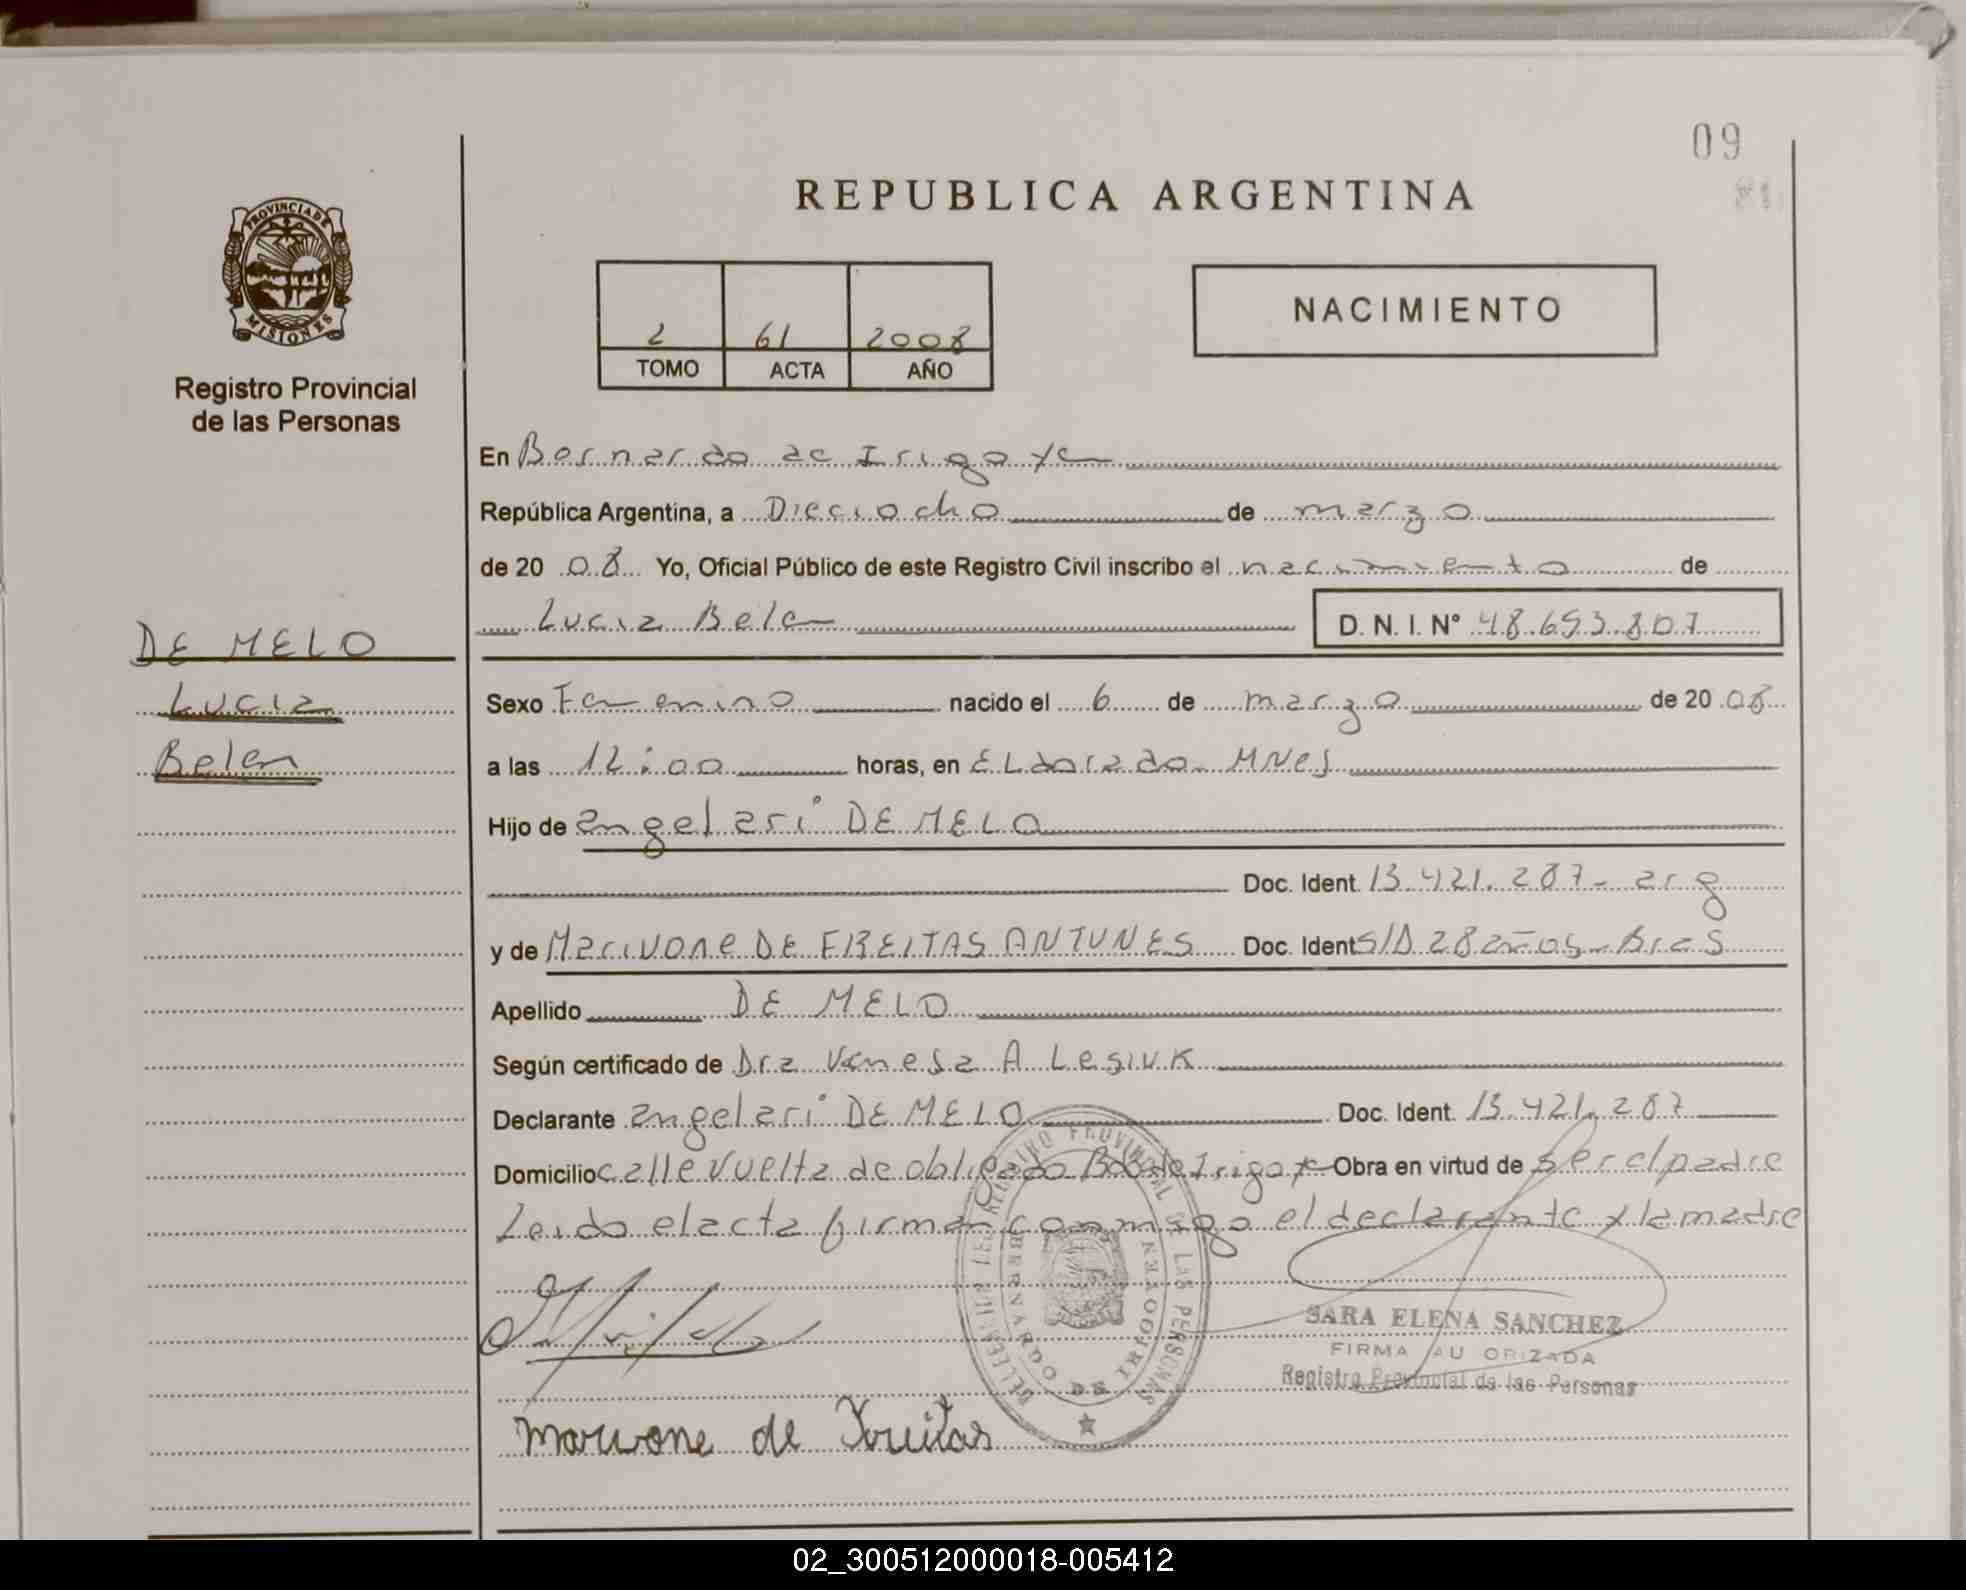 09
REPUBLICA ARGENTINA
PROVINCIA DE
MISIONES
Registro Provincial
de las Personas
2 61 2008
TOMO ACTA AÑO
NACIMIENTO
En Bernardo de Irigoye
República Argentina, a Dieciocho de marzo
de 20 08 Yo, Oficial Público de este Registro Civil inscribo el nacimiento de
Lucia Belen D. N. I. Nº 48.653.807
DE MELO
Lucia
Belen
Sexo Femenino nacido el 6 de marzo de 20 08
a las 12:00 horas, en ELdorado MNes
Hijo de angelari DE MELO
Doc. Ident. 13.421.287- arg
y de Marivone DE FREITAS ANTUNES Doc. Ident S/D 28 años - Bras
Apellido DE MELO
Según certificado de Dra Vanesa A Lesiuk
Declarante angelari DE MELO Doc. Ident. 13.421.287
Domicilio calle Vuelta de obligado Bdo de Irigoye Obra en virtud de ser el padre
Leido el acta firman conmigo el declarante y la madre
REGISTRO PROVINCIAL DE LAS PERSONAS
BERNARDO DE IRIGOYEN
SARA ELENA SANCHEZ
FIRMA AU ORIZADA
Registro Provincial de las Personas
Marivone de Freitas
02_300512000018-005412